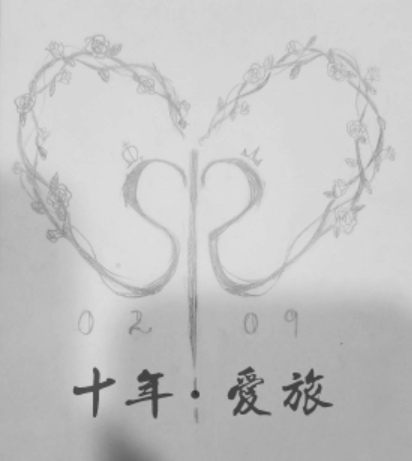 02 09
十年·愛旅